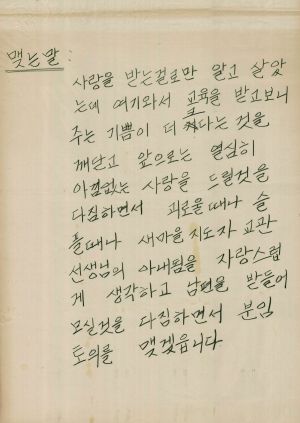 맺는말:
사랑을 받는걸로만 알고 살았
는데 여기와서 교육을 받고보니
주는 기쁨이 더 크다는 것을
깨닫고 앞으로는 열심히
아낌없는 사랑을 드릴것을
다짐하면서 괴로울때나 슬
플때나 새마을 지도자 교관
선생님의 아내됨을 자랑스럽
게 생각하고 남편을 받들어
모실것을 다짐하면서 분임
토의를 맺겠읍니다